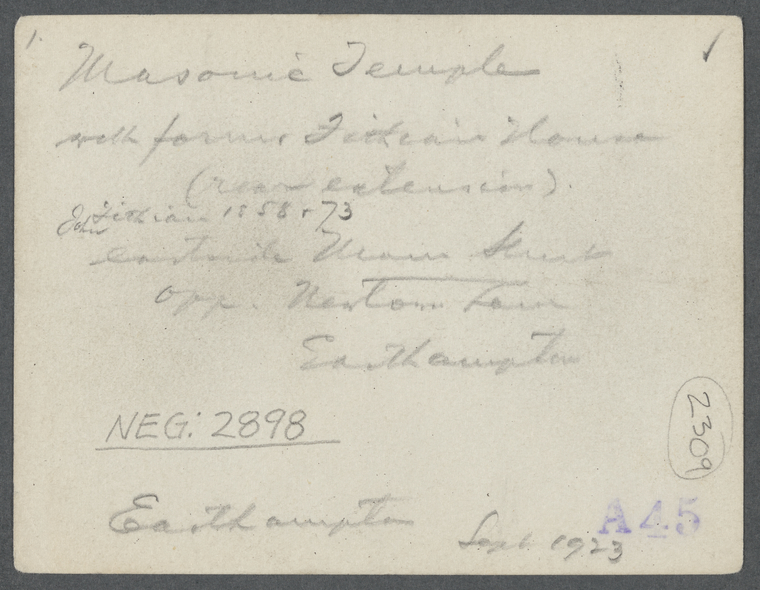 1.
Masonic Temple
with former Fithian House
(rear extension).
John Fithian 1858 & 73
eastside Main Street
opp. Newtown Lane
Easthampton
NEG: 2898
2309
Easthampton
Sept 1923
A45